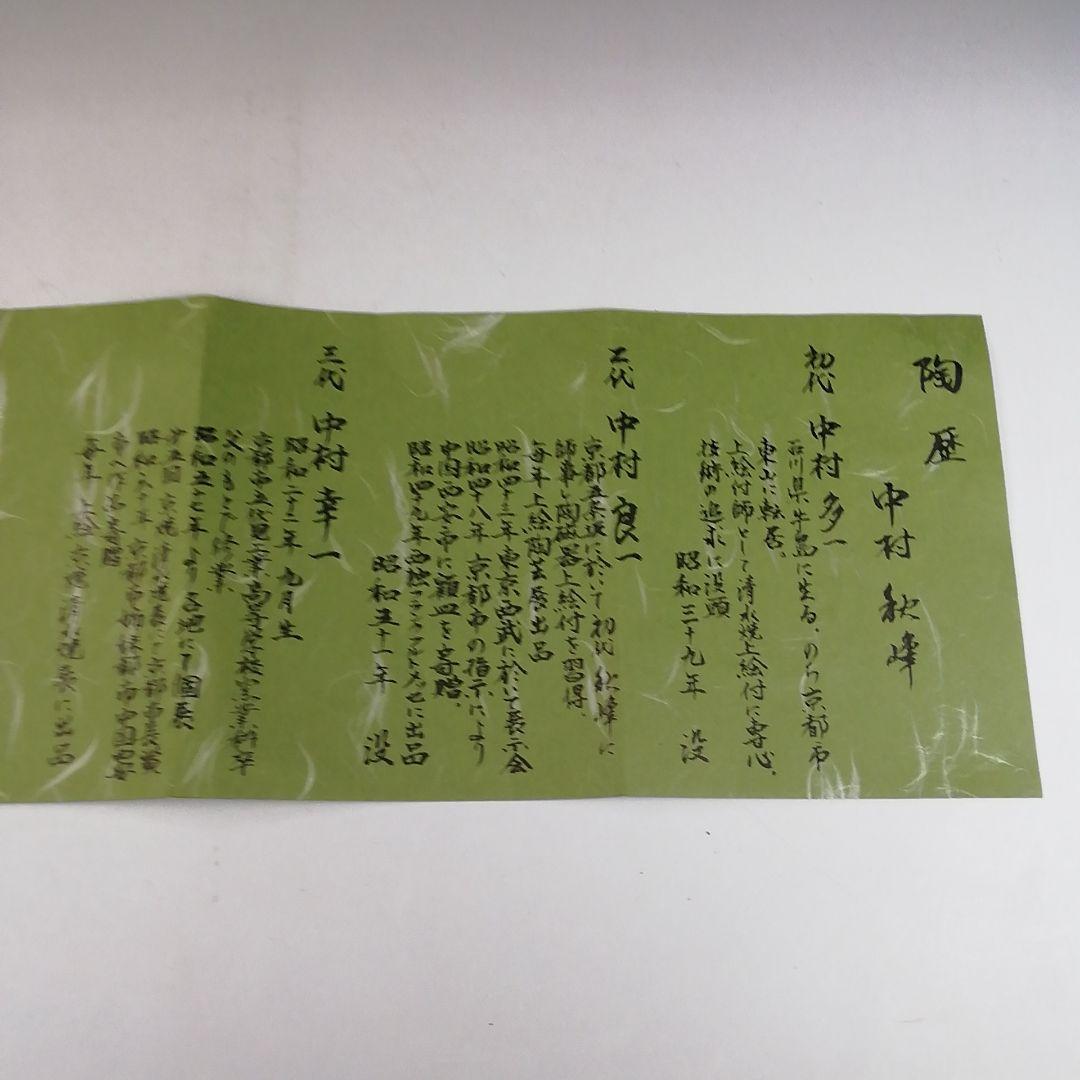 陶歴
中村秋峰
初代 中村多一
石川県牛島に生る、のち京都市
東山に転居、
上絵付師として清水焼上絵付に専心、
技術の追求に没頭
昭和三十九年 没
二代 中村良一
京都五条坂に於いて初代秋峰に
師事し陶磁器上絵付を習得、
毎年上絵陶芸展出品
昭和四十三年東京西武に於いて展示会
昭和四十八年京都市の指示により
中国西安市に額皿を寄贈、
昭和四九年西独フランクフルトメッセに出品
昭和五十一年 没
三代 中村幸一
昭和二十三年九月生
京都市立伏見工業高等学校窯業科卒
父のもとで修業、
昭和五十年より各地にて個展
京焼・清水焼展にて京都市長賞
昭和六十年 京都市姉妹都市中国西安
市へ作品寄贈
毎年 上絵 京焼清水焼展に出品